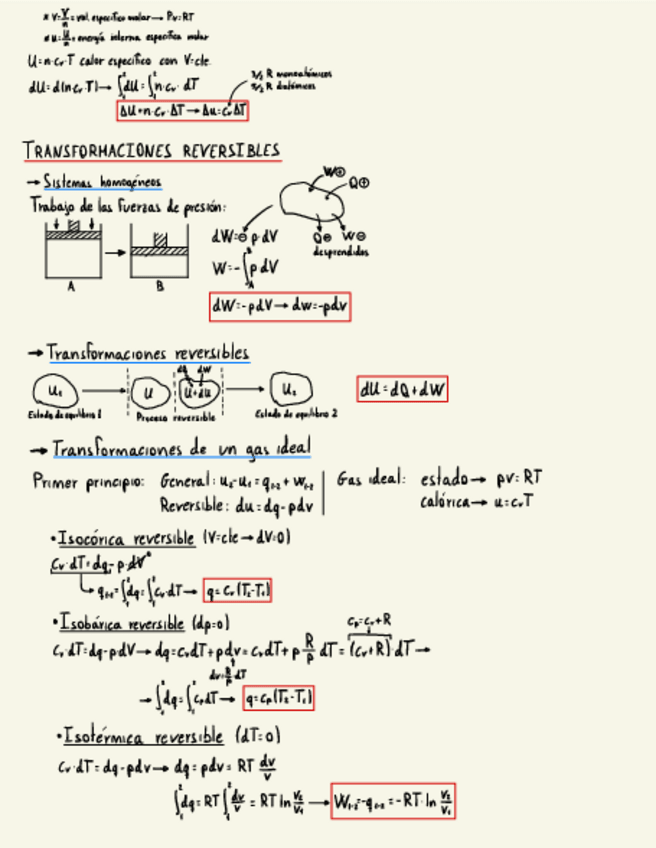 * v=V/n = vol. específico molar → Pv=RT
* u=U/n = energía interna específica molar
U=n·cᵥ·T calor específico con V=cte.
dU=d(ncᵥT) → ∫₁²dU=∫₁²n·cᵥ·dT
3/2 R monoatómicos
5/2 R diatómicos
ΔU=n·cᵥ·ΔT → Δu=cᵥΔT
TRANSFORMACIONES REVERSIBLES
→ Sistemas homogéneos
W⊕
Q⊕
Trabajo de las fuerzas de presión:
dW=⊖p·dV
Q⊖ W⊖
desprendidos
W=-∫p dV
A
B
A B
dW=-pdV → dw=-pdv
→ Transformaciones reversibles
dQ dW
U₁ → U U+dU → U₂
dU=dQ+dW
Estado de equilibrio 1 Proceso reversible Estado de equilibrio 2
→ Transformaciones de un gas ideal
Primer principio: General: u₂-u₁=q₁₋₂+w₁₋₂ Gas ideal: estado → pv=RT
Reversible: du=dq-pdv calórica → u=cᵥT
• Isocórica reversible (V=cte → dV=0)
cᵥ·dT=dq-p·dv⁰
q₁₋₂=∫₁²dq=∫₁²cᵥdT → q=cᵥ(T₂-T₁)
• Isobárica reversible (dp=0)
cₚ=cᵥ+R
cᵥ·dT=dq-p·dV → dq=cᵥdT+pdv=cᵥdT+p R/p dT=(cᵥ+R)·dT →
dv=R/p dT
→ ∫₁²dq=∫₁²cₚdT → q=cₚ(T₂-T₁)
• Isotérmica reversible (dT=0)
cᵥ·dT=dq-pdv → dq=pdv=RT dv/v
∫₁²dq=RT∫₁²dv/v=RT ln v₂/v₁ → W₁₋₂=-q₁₋₂=-RT·ln v₂/v₁